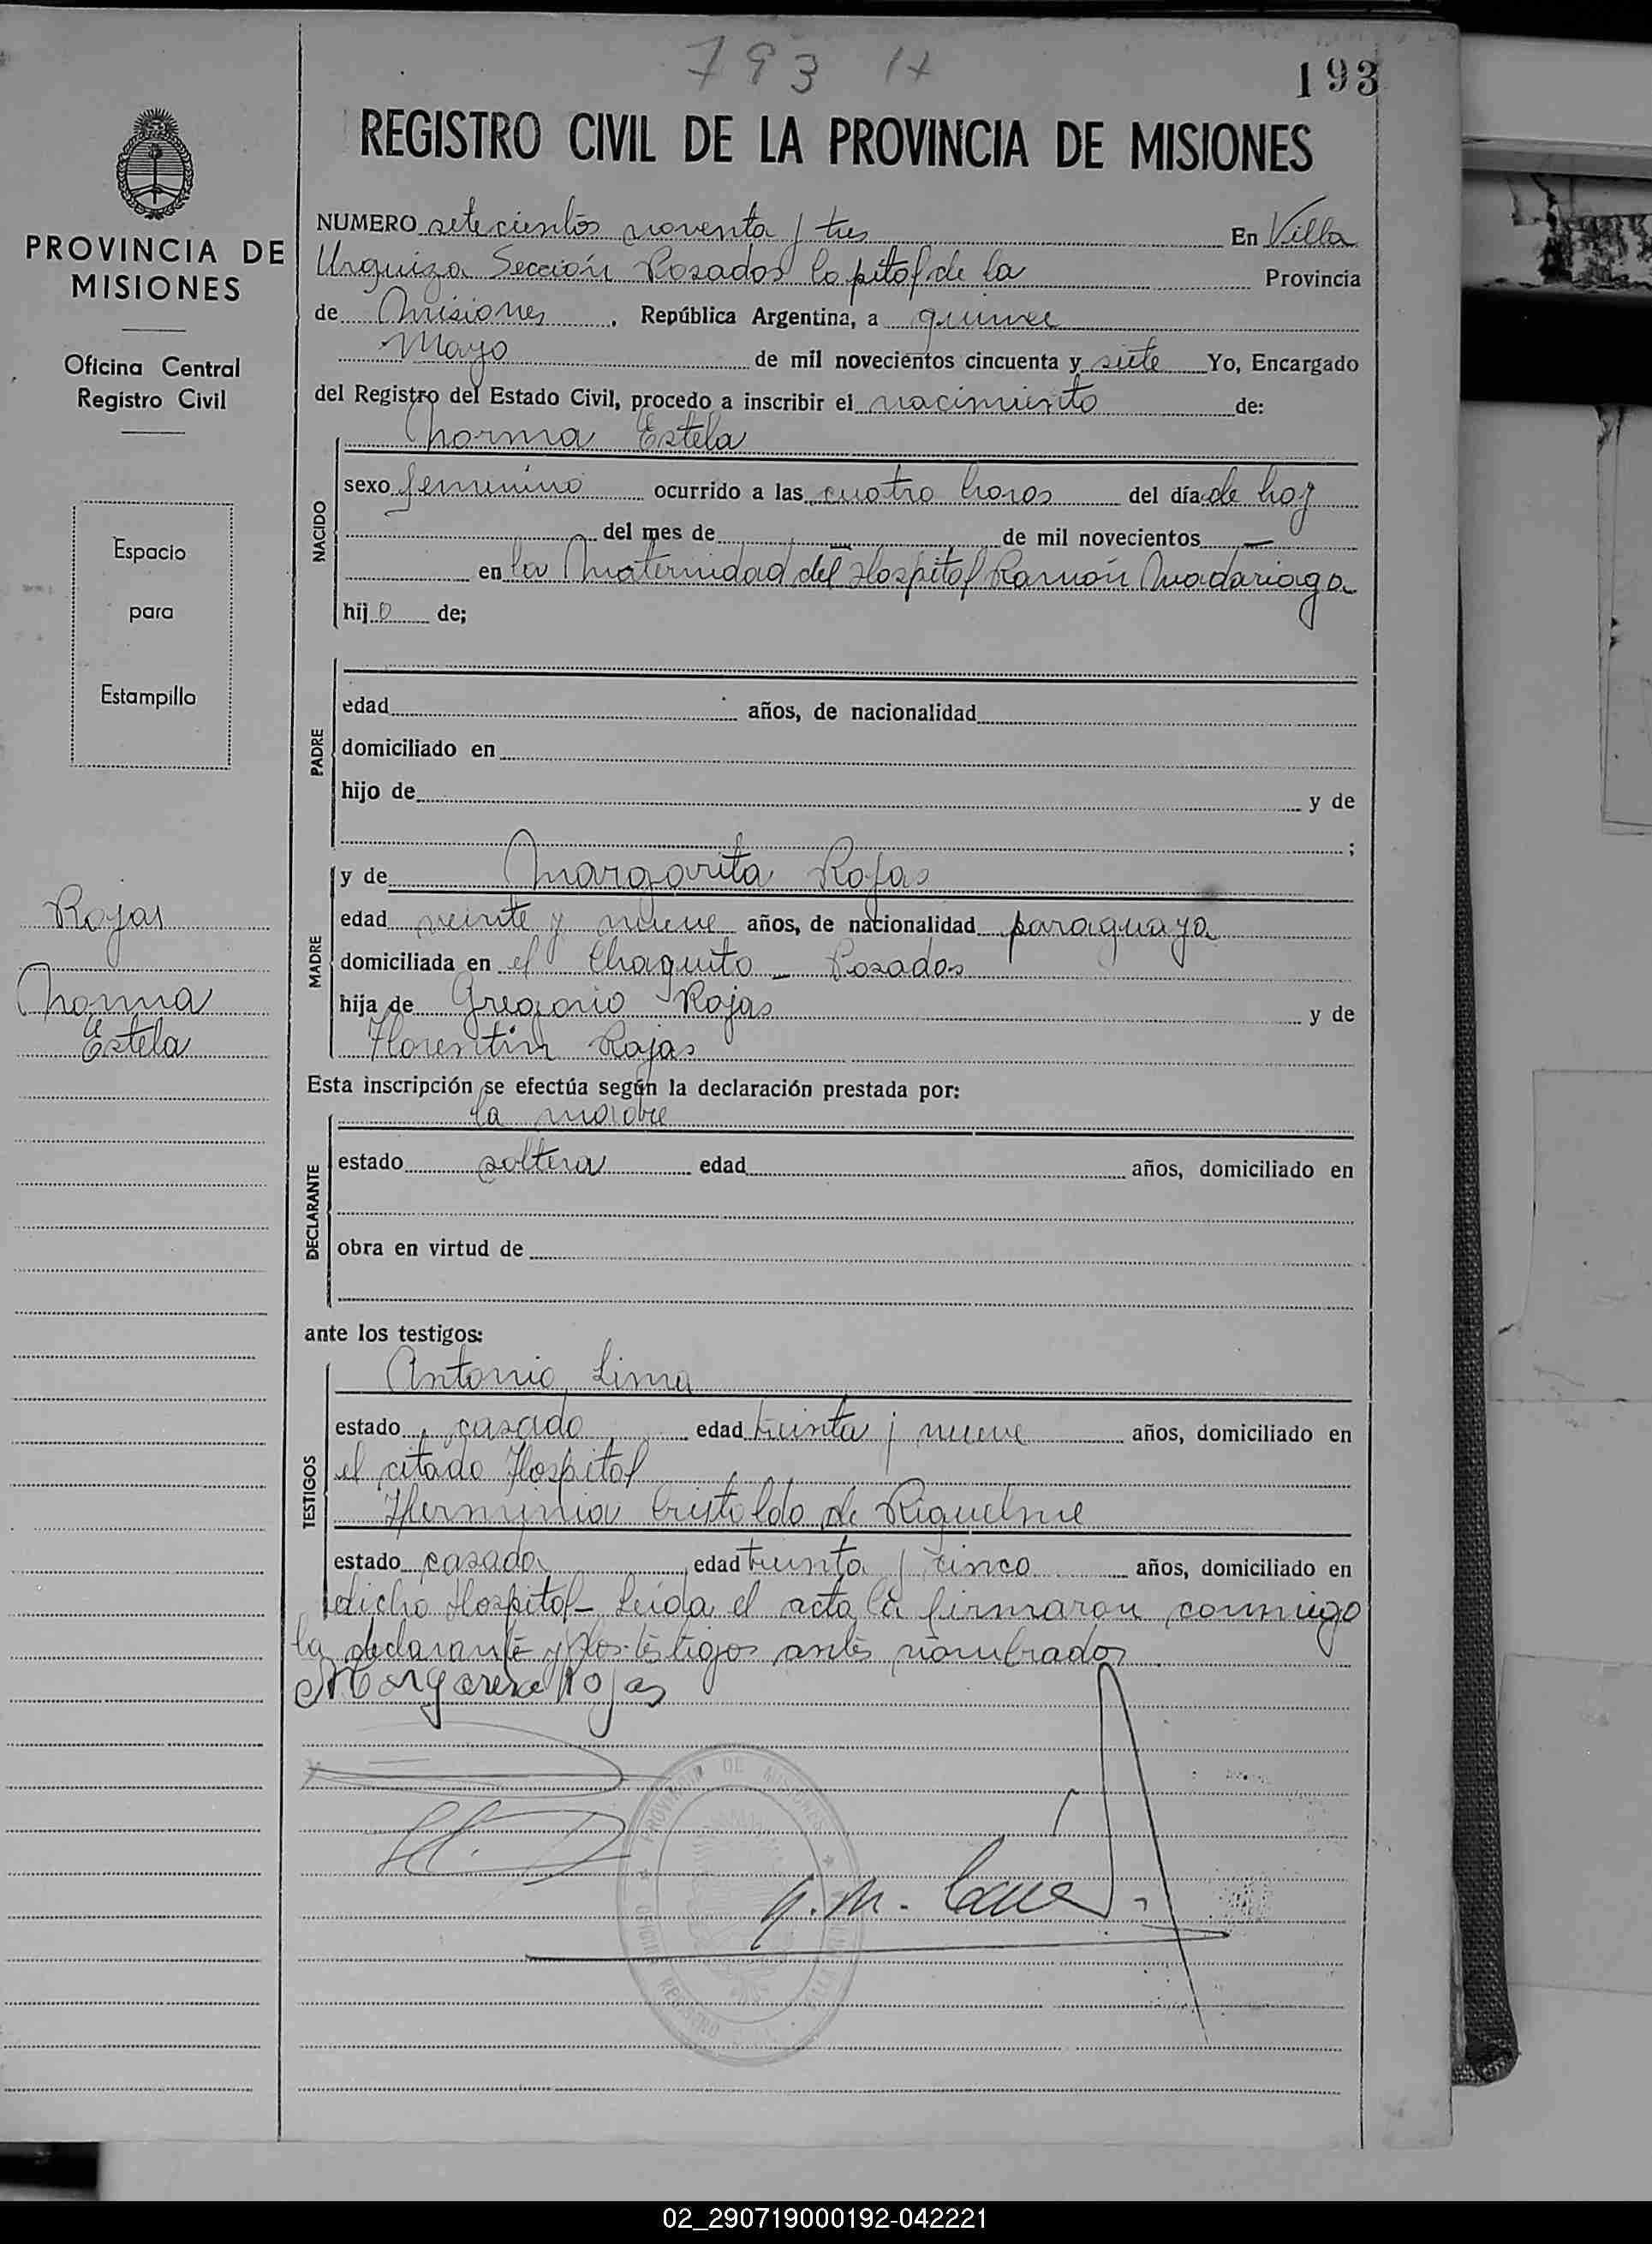 793 17
193
REGISTRO CIVIL DE LA PROVINCIA DE MISIONES
PROVINCIA DE
MISIONES
Oficina Central
Registro Civil
Espacio
para
Estampilla
Rojas
Norma
Estela
NUMERO setecientos noventa y tres En Villa
Urquiza Sección Posadas Capital de la Provincia
de Misiones, República Argentina, a quince
Mayo de mil novecientos cincuenta y siete Yo, Encargado
del Registro del Estado Civil, procedo a inscribir el nacimiento de:
NACIDO
Norma Estela
sexo femenino ocurrido a las cuatro horas del día de hoy
del mes de — de mil novecientos —
en la Maternidad del Hospital Ramón Madariaga
hij a de;
PADRE
edad años, de nacionalidad
domiciliado en
hijo de y de
;
MADRE
y de Margarita Rojas
edad veinte y nueve años, de nacionalidad paraguaya
domiciliada en el Chaquito - Posadas
hija de Gregorio Rojas y de
Florentin Rojas
Esta inscripción se efectúa según la declaración prestada por:
DECLARANTE
la madre
estado soltera edad años, domiciliado en
obra en virtud de
ante los testigos:
TESTIGOS
Antonio Lima
estado casado edad treinta y nueve años, domiciliado en
el citado Hospital
Herminia Cristaldo de Riquelme
estado casada edad treinta y cinco años, domiciliado en
dicho Hospital - Leída el acta la firmaron conmigo
la declarante y los testigos antes nombrados
Margarita Rojas
PROVINCIA DE MISIONES
02_290719000192-042221